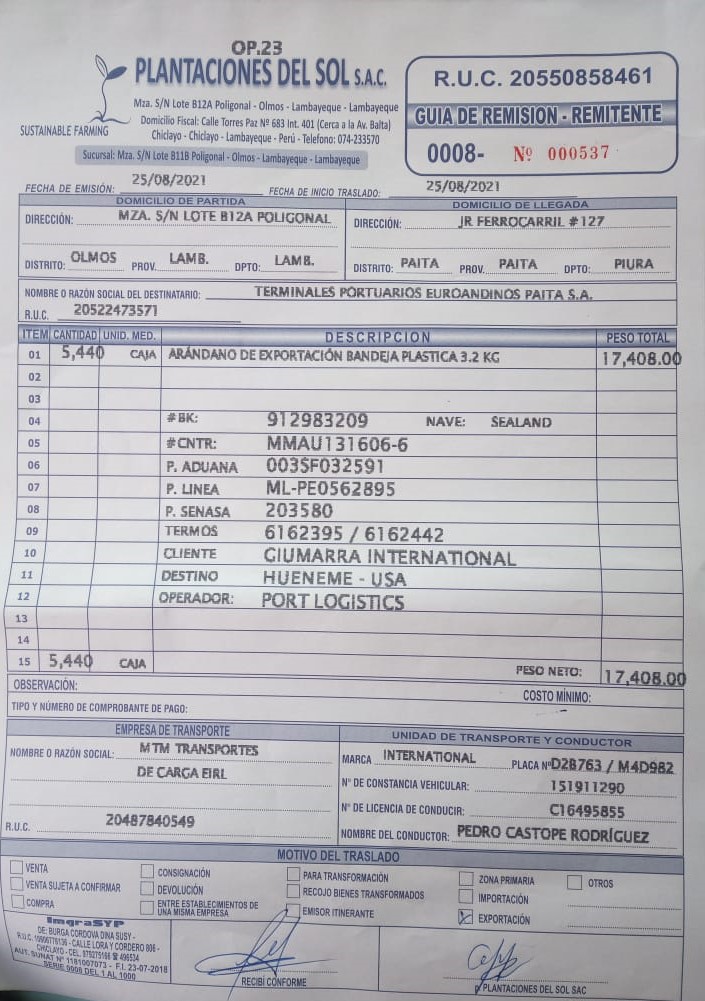 OP.23
PLANTACIONES DEL SOL S.A.C.
SUSTAINABLE FARMING
Mza. S/N Lote B12A Poligonal - Olmos - Lambayeque - Lambayeque
Domicilio Fiscal: Calle Torres Paz Nº 683 Int. 401 (Cerca a la Av. Balta)
Chiclayo - Chiclayo - Lambayeque - Perú - Telefono: 074-233570
Sucursal: Mza. S/N Lote B11B Poligonal - Olmos - Lambayeque - Lambayeque
R.U.C. 20550858461
GUIA DE REMISION - REMITENTE
0008- Nº 000537
FECHA DE EMISIÓN: 25/08/2021 FECHA DE INICIO TRASLADO: 25/08/2021
DOMICILIO DE PARTIDA DOMICILIO DE LLEGADA
DIRECCIÓN: MZA. S/N LOTE B12A POLIGONAL DIRECCIÓN: JR FERROCARRIL #127
DISTRITO: OLMOS PROV. LAMB. DPTO: LAMB. DISTRITO: PAITA PROV. PAITA DPTO: PIURA
NOMBRE O RAZÓN SOCIAL DEL DESTINATARIO: TERMINALES PORTUARIOS EUROANDINOS PAITA S.A.
R.U.C. 20522473571
ITEM CANTIDAD UNID. MED. DESCRIPCION PESO TOTAL
01 5,440 CAJA ARÁNDANO DE EXPORTACIÓN BANDEJA PLASTICA 3.2 KG 17,408.00
02
03
04 #BK: 912983209 NAVE: SEALAND
05 #CNTR: MMAU131606-6
06 P. ADUANA 003SF032591
07 P. LINEA ML-PE0562895
08 P. SENASA 203580
09 TERMOS 6162395 / 6162442
10 CLIENTE GIUMARRA INTERNATIONAL
11 DESTINO HUENEME - USA
12 OPERADOR: PORT LOGISTICS
13
14
15 5,440 CAJA PESO NETO: 17,408.00
OBSERVACIÓN: COSTO MÍNIMO: -
TIPO Y NÚMERO DE COMPROBANTE DE PAGO:
EMPRESA DE TRANSPORTE UNIDAD DE TRANSPORTE Y CONDUCTOR
NOMBRE O RAZÓN SOCIAL: MTM TRANSPORTES MARCA INTERNATIONAL PLACA Nº D2B763 / M4D982
DE CARGA EIRL Nº DE CONSTANCIA VEHICULAR: 151911290
Nº DE LICENCIA DE CONDUCIR: C16495855
R.U.C. 20487840549 NOMBRE DEL CONDUCTOR: PEDRO CASTOPE RODRÍGUEZ
MOTIVO DEL TRASLADO
VENTA CONSIGNACIÓN PARA TRANSFORMACIÓN ZONA PRIMARIA OTROS
VENTA SUJETA A CONFIRMAR DEVOLUCIÓN RECOJO BIENES TRANSFORMADOS IMPORTACIÓN
COMPRA ENTRE ESTABLECIMIENTOS DE UNA MISMA EMPRESA EMISOR ITINERANTE EXPORTACIÓN
ImgraSYP
DE: BURGA CORDOVA DINA SUSY -
CALLE LORA Y CORDERO 806 -
CHICLAYO - CEL.
AUT. SUNAT Nº 1181007073 - F.I. 23-07-2018
SERIE 0008 DEL 1 AL 1000
RECIBÍ CONFORME
p. PLANTACIONES DEL SOL SAC